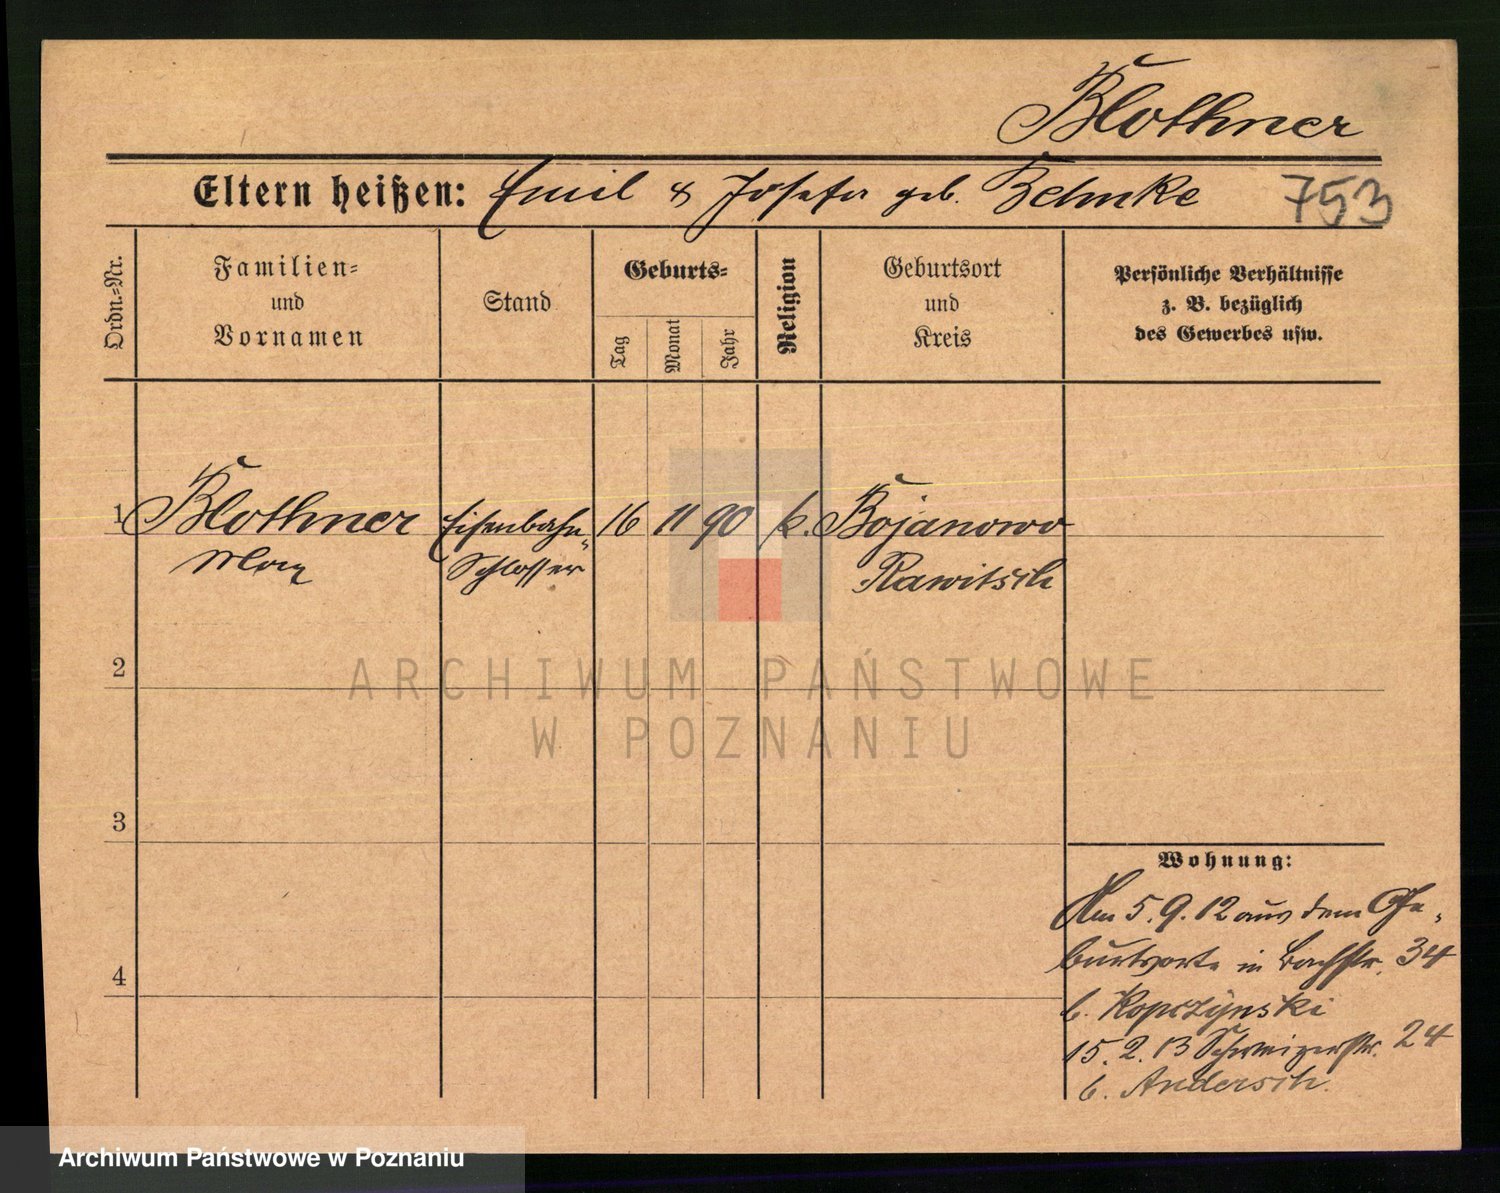 Blothner
Eltern heißen: Emil & Josefa geb. Behmke
753
Ordn.-Nr.
Familien-
und
Vornamen
Stand
Geburts-
Tag
Monat
Jahr
Religion
Geburtsort
und
Kreis
Persönliche Verhältnisse
z. B. bezüglich
des Gewerbes usw.
1 Blothner Eisenbahn- 16 11 90 k. Bojanowo
Max Schlosser Rawitsch
2
ARCHIWUM PAŃSTWOWE
W POZNANIU
3
Wohnung:
Am 5.9.12 aus dem Ge-
burtsorte in Bachstr. 34
4
b. Kopczynski
15.2.13 Schweizerstr. 24
b. Andersch.
Archiwum Państwowe w Poznaniu